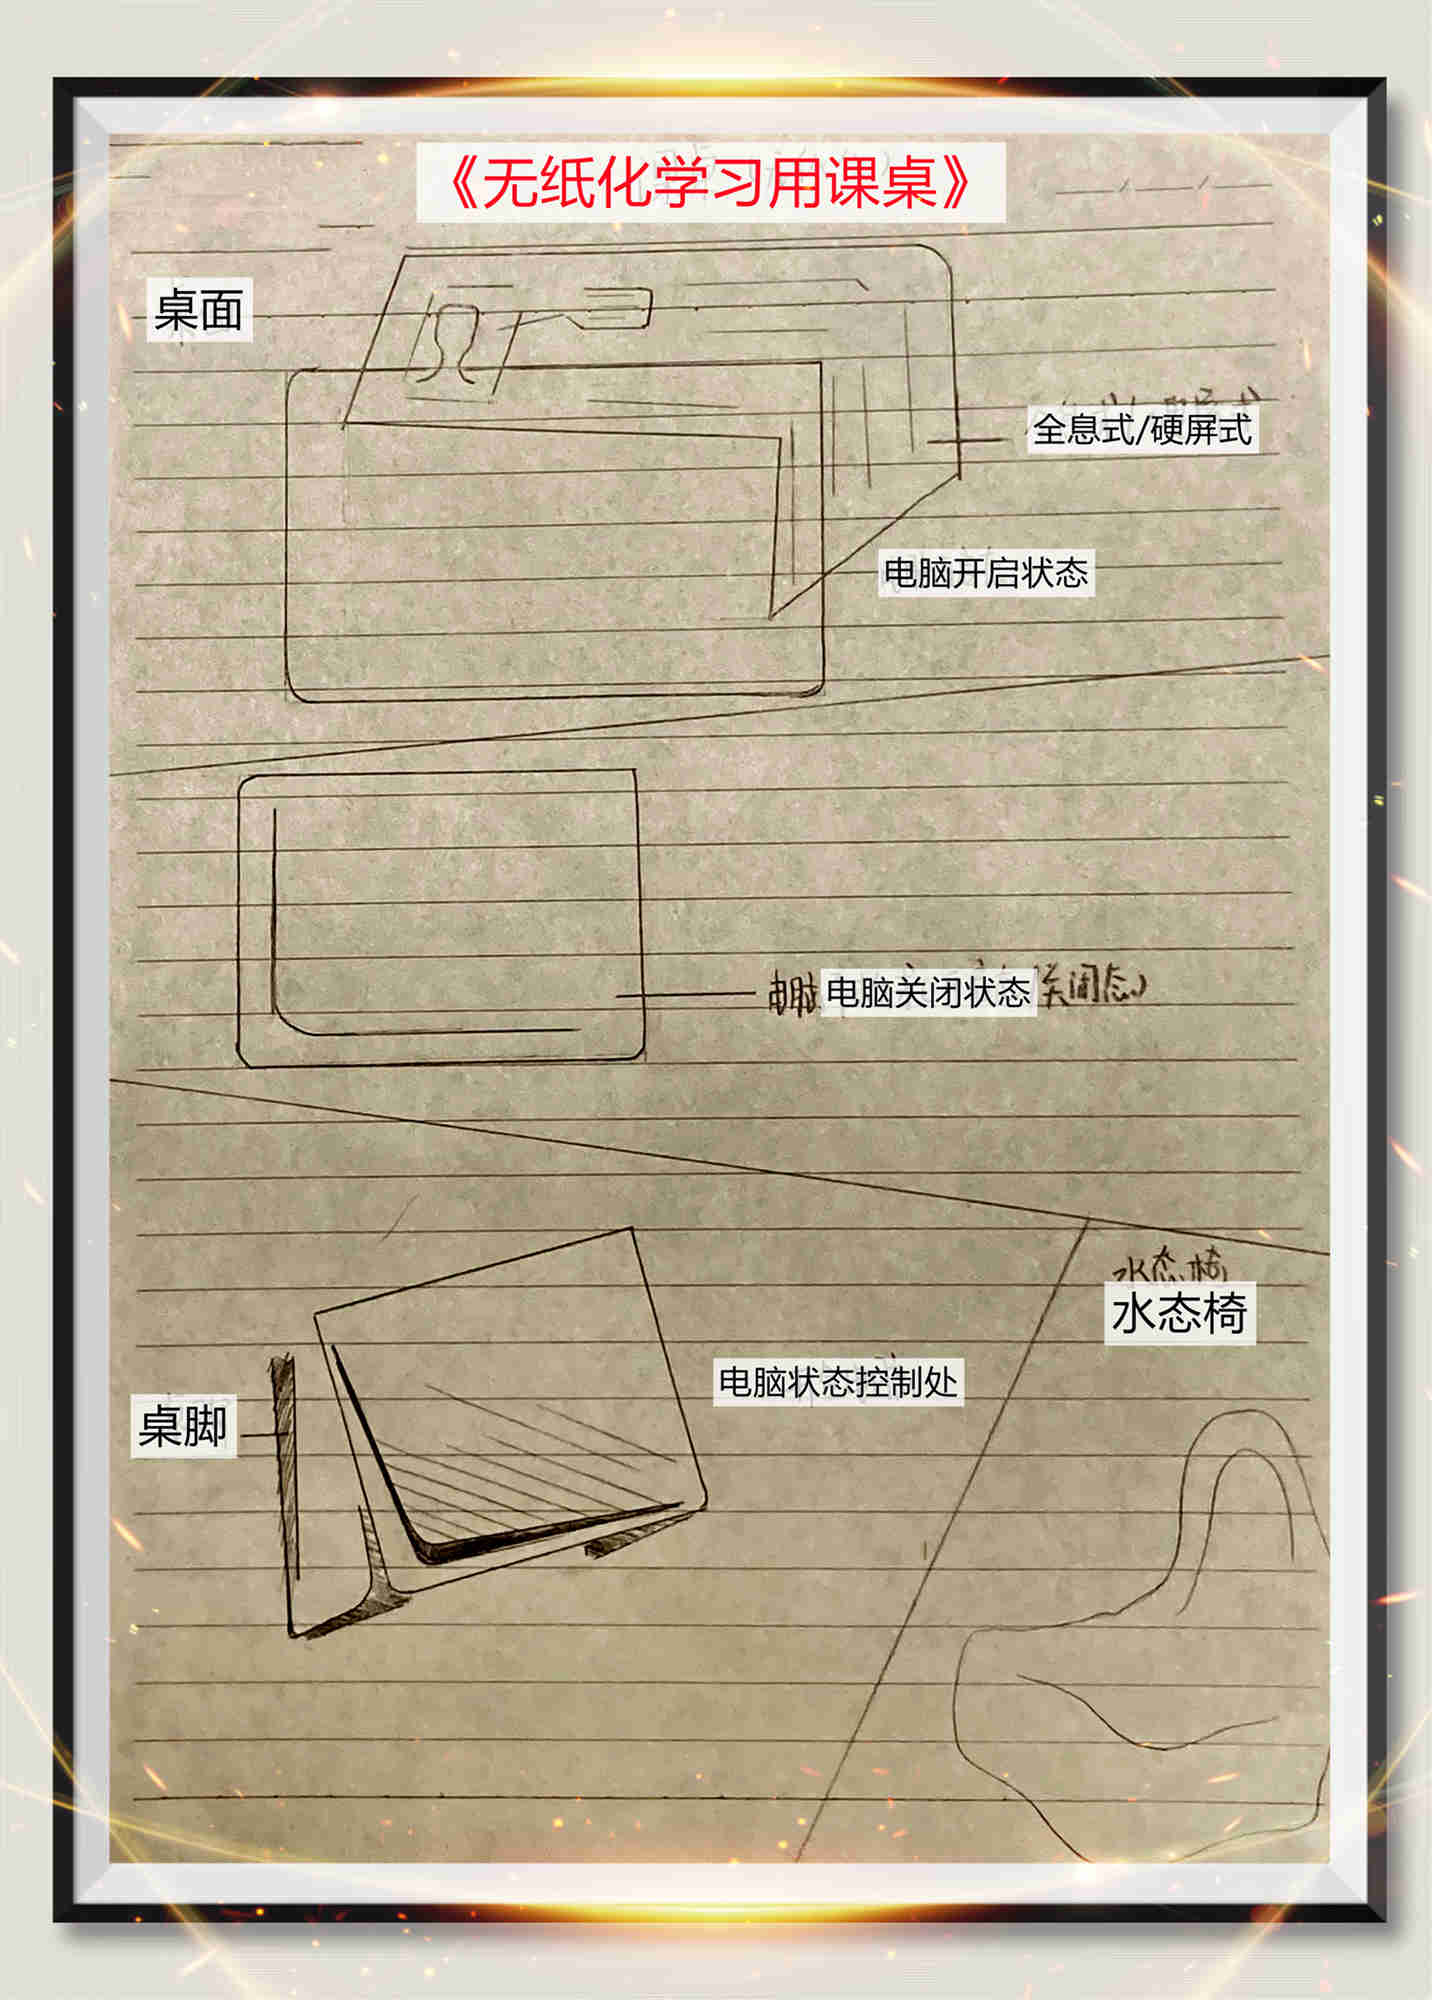 《无纸化学习用课桌》
桌面
全息式/硬屏式
电脑开启状态
电脑 电脑关闭状态 关闭态)
水态椅
水态椅
电脑状态控制处
桌脚